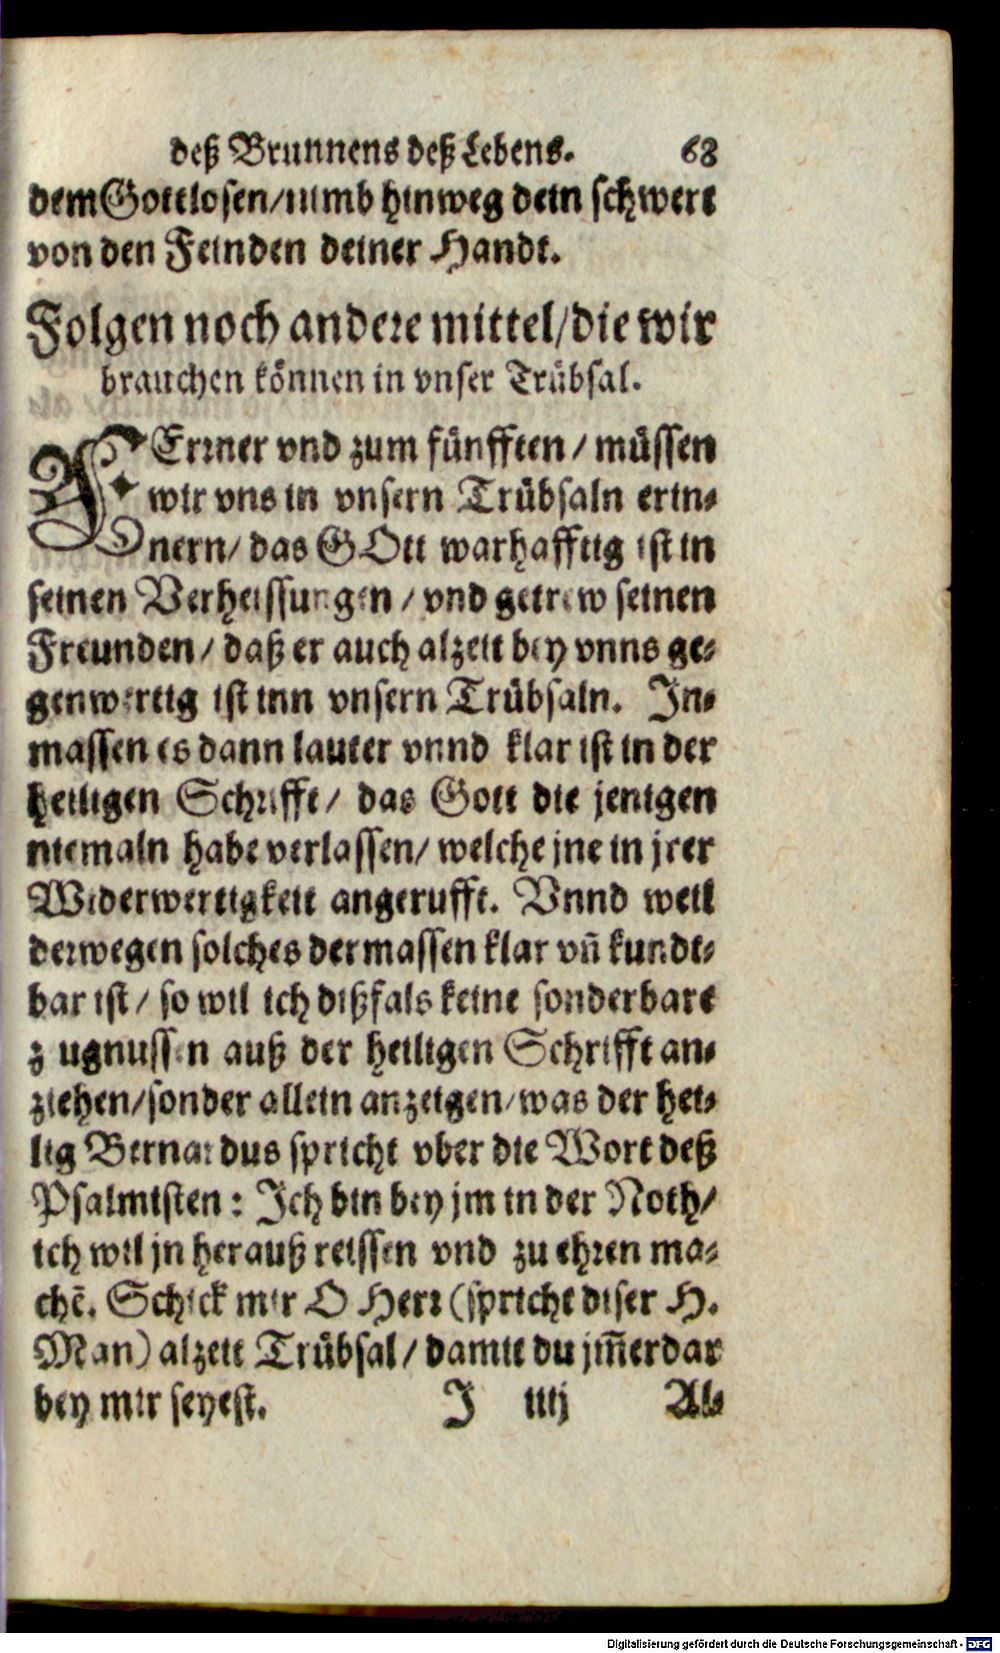 deß Brunnens deß Lebens. 68
dem Gottlosen/nimb hinweg dein schwert
von den Feinden deiner Handt.
Folgen noch andere mittel/die wir
brauchen können in vnser Trübsal.
FErrner vnd zum fünfften/ müssen
wir vns in vnsern Trübsaln erin-
nern/ das GOtt warhafftig ist in
seinen Verheissungen/ vnd getrew seinen
Freunden/ daß er auch alzeit bey vnns ge-
genwertig ist inn vnsern Trübsaln. In-
massen es dann lauter vnnd klar ist in der
heiligen Schrifft/ das Gott die jenigen
niemaln habe verlassen/ welche jne in jrer
Widerwertigkeit angerufft. Vnnd weil
derwegen solches dermassen klar vñ kundt-
bar ist/ so wil ich dißfals keine sonderbare
zeugnussen auß der heiligen Schrifft an-
ziehen/sonder allein anzeigen/was der hei-
lig Bernardus spricht vber die Wort deß
Psalmisten: Ich bin bey jm in der Noth/
ich wil jn herauß reissen vnd zu ehren ma-
chē. Schick mir O Herr (spricht diser H.
Man) alzeit Trübsal/ damit du jm̃erdar
bey mir seyest. J iiij Al-
Digitalisierung gefördert durch die Deutsche Forschungsgemeinschaft - DFG